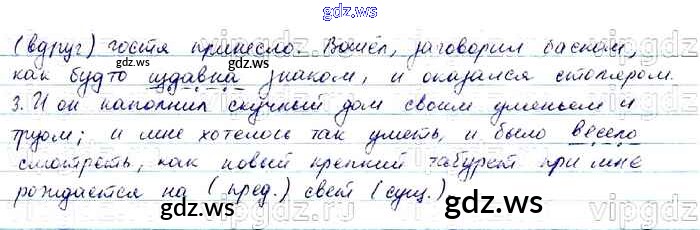 gdz.ws
(вдруг) гостя принесло. Вошёл, заговорил баском,
как будто издавна знаком, и оказался столяром.
3. И он наполнил скучный дом своим уменьем и
трудом; и мне хотелось так уметь, и было весело
смотреть, как новый крепкий табурет при мне
рождается на (пред.) свет (сущ.)
gdz.ws gdz.ws
gdz.ws gdz.ws
gdz.ws gdz.ws